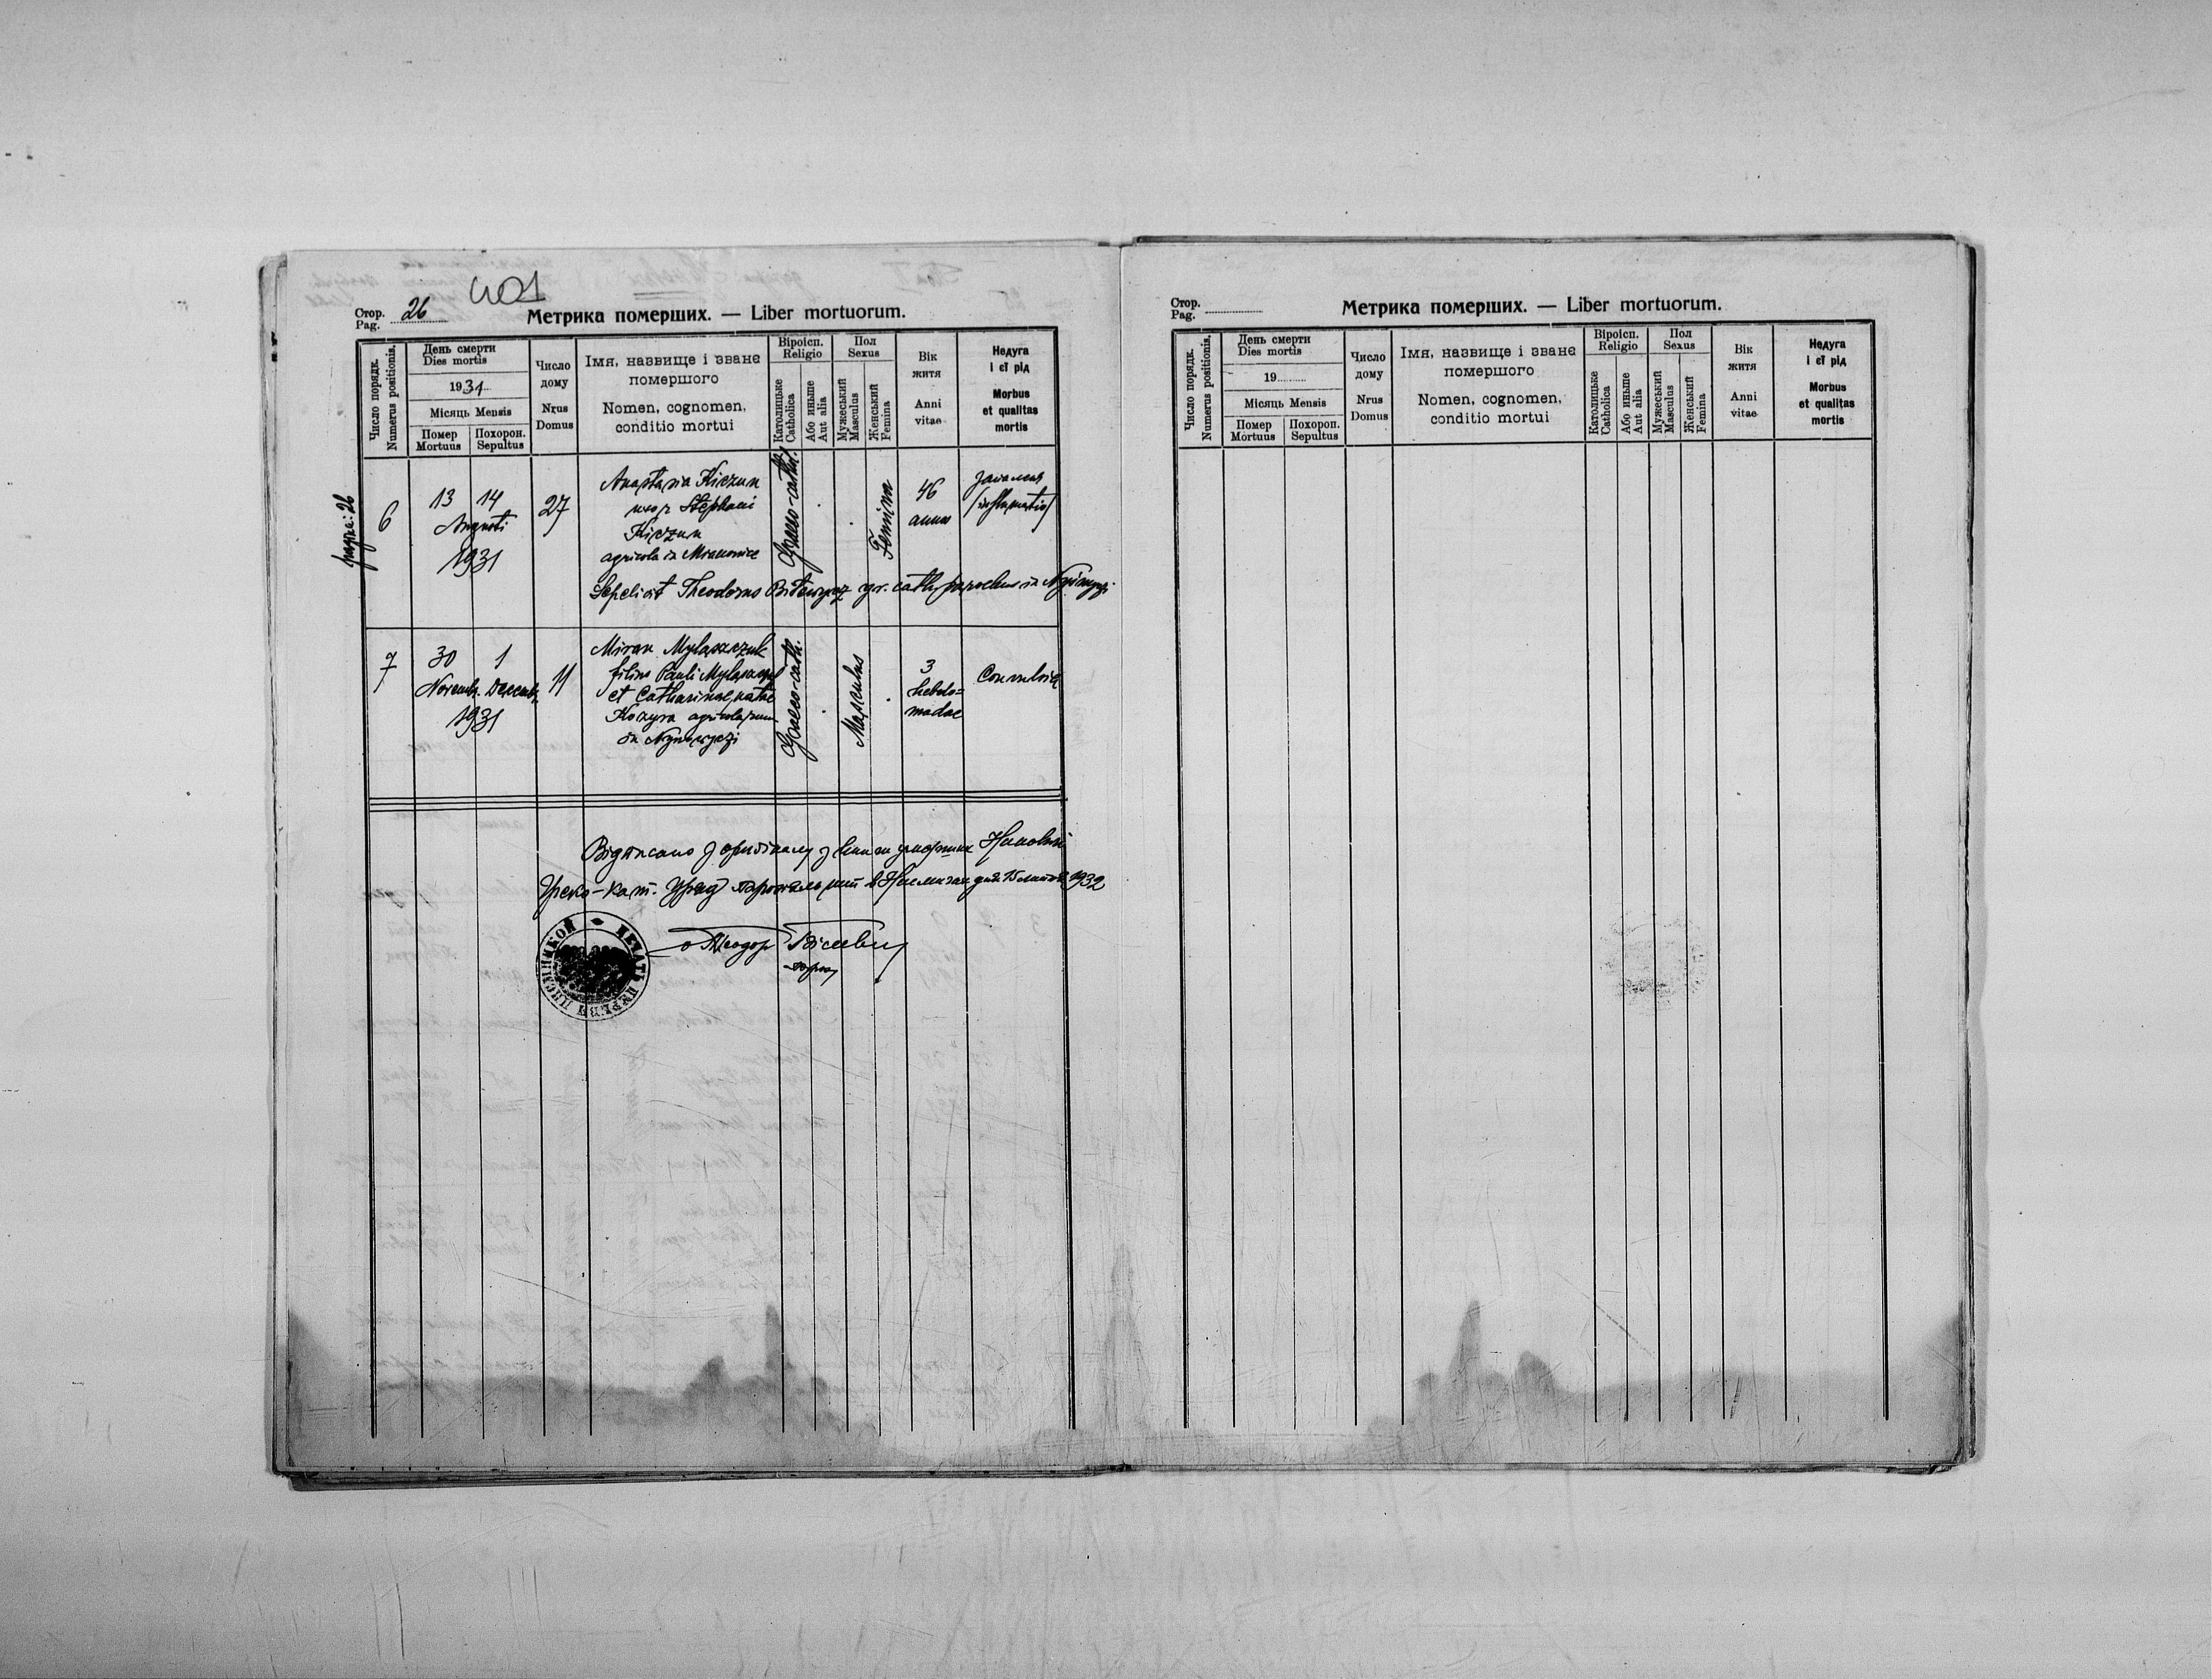 401
Стор.
Pag. 26
Метрика померших. — Liber mortuorum.
Число порядк.
Numerus positionis.
День смерти
Dies mortis
1931
Місяць Mensis
Помер
Mortuus
Похорон.
Sepultus
Число
дому
Nrus
Domus
Імя, назвище і званє
помершого
Nomen, cognomen,
conditio mortui
Віроісп.
Religio
Католицьке
Catholica
Або иньше
Aut alia
Пол
Sexus
Мужеський
Masculus
Женський
Femina
Вік
житя
Anni
vitae
Недуга
і єї рід
Morbus
et qualitas
mortis
pagina: 26
6
13 14
Augusti
1931
27
Anastasia Kiczun
uxor Stephani
Kiczun
agricola in
Graeco-cath.
Femina
46
annos
Sepelivit Theodorus gr. cath. parochus in
7
30 1
Novemb. Decemb.
1931
11
Miron Mylaszczuk
filius Pauli Mylaszczuk
et Catharinae natae
Kozyra agricolarum
in
Graeco-cath.
Masculus
3
hebdo=
madae
Convulsio
Відписано з оригіналу з книги умерших
Греко-кат. Уряд парохіяльний в дня 15 1932
о Теодор
Стор.
Pag.
Метрика померших. — Liber mortuorum.
Число порядк.
Numerus positionis.
День смерти
Dies mortis
19
Місяць Mensis
Помер
Mortuus
Похорон.
Sepultus
Число
дому
Nrus
Domus
Імя, назвище і званє
помершого
Nomen, cognomen,
conditio mortui
Віроісп.
Religio
Католицьке
Catholica
Або иньше
Aut alia
Пол
Sexus
Мужеський
Masculus
Женський
Femina
Вік
житя
Anni
vitae
Недуга
і єї рід
Morbus
et qualitas
mortis